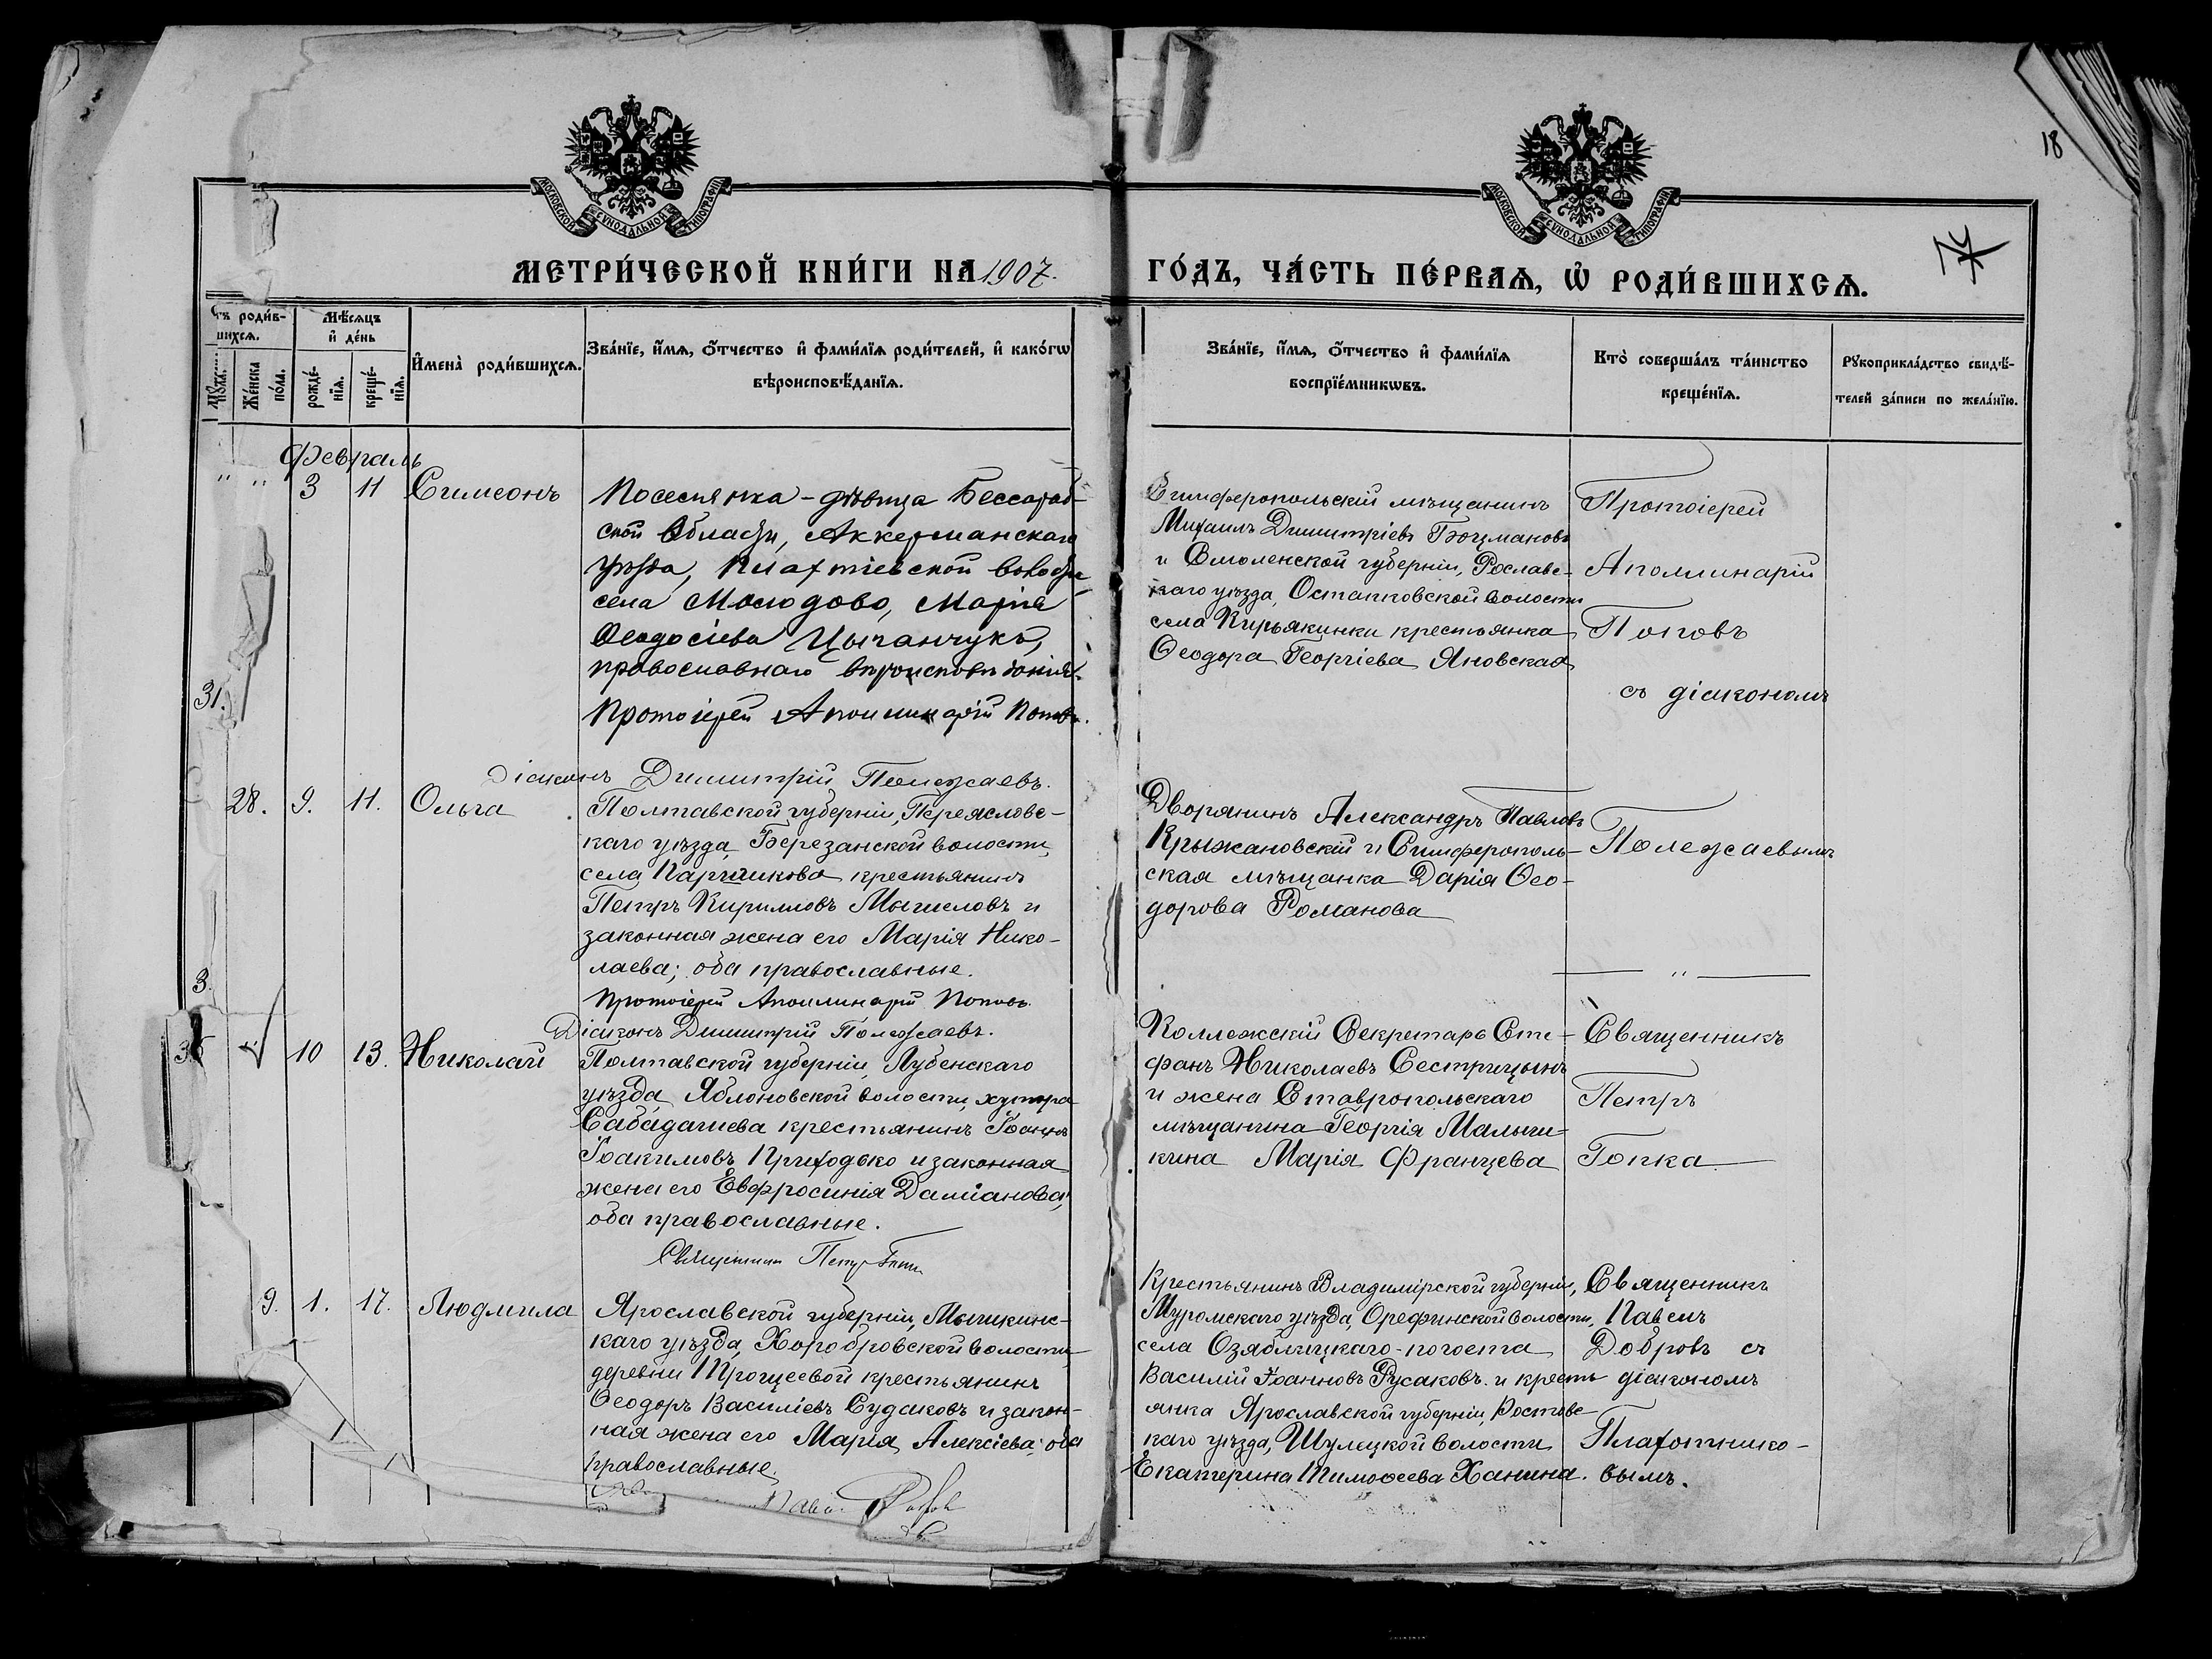 18
МОСКОВСКОЙ СѴНОДАЛЬНОЙ ТИПОГРАФІИ
МОСКОВСКОЙ СѴНОДАЛЬНОЙ ТИПОГРАФІИ
МЕТРИ́ЧЕСКОЙ КНИ́ГИ НА 1907.
ГО́ДЪ, ЧА́СТЬ ПЕ́РВАѦ, Ѡ҆ РОДИ́ВШИХСѦ.
тъ роди́в-
шихсѧ.
Мѣ́сѧцъ
и҆ де́нь
пола.
Же́нска
по́ла.
рожде́-
нїѧ.
креще́-
нїѧ.
И҆мена̀ роди́вшихсѧ.
Зва́нїе, и҆́мѧ, ѻ҆́тчество и҆ фами́лїѧ роди́телей, и҆ како́гѡ
вѣроисповѣ́данїѧ.
Зва́нїе, и҆́мѧ, ѻ҆́тчество и҆ фами́лїѧ
воспрїе́мникѡвъ.
Кто̀ соверша́лъ та́инство
креще́нїѧ.
Рꙋкоприкла́дство свидѣ́-
телей за́писи по жела́нїю.
Февраль
" " 3 11 Симеонъ
31.
Поселянка-дѣвица Бессараб-
ской Области, Аккерманскаго
уѣзда, волости
села Молодово, Марія
Ѳеодосіева Цыганчукъ,
православнаго вѣроисповѣданія.
Протоіерей Аполлинарій Поповъ.
Діаконъ Димитрій Полежаевъ.
Симферопольскій мѣщанинъ
Михаилъ Димитріевъ Боцмановъ
и Смоленской губерніи, Рославс-
каго уѣзда, Остапковской волости
села Кирьякинки крестьянка
Ѳеодора Георгіева Яновская
Протоіерей
Аполлинарій
Поповъ
съ діакономъ
28. 9. 11. Ольга
Полтавской губерніи, Переясловс-
каго уѣзда, Березанской волости,
села крестьянинъ
Петръ Кирилловъ Мыгисловъ и
законная жена его Марія Нико-
лаева; оба православные.
Протоіерей Аполлинарій Поповъ.
Діаконъ Димитрій Полежаевъ.
Дворянинъ Александръ Павловъ
Крыжановскій и Симферополь-
ская мѣщанка Дарія Ѳео-
дорова Романова
Полежаевымъ
— " —
3
10 13. Николай
Полтавской губерніи, Лубенскаго
уѣзда, Яблоновской волости, хутора
крестьянинъ Іоаннъ
Іоакимовъ Приходько и законная
жена его Евфросинія Даміанова;
оба православные.
Священникъ Петръ
Коллежскій Секретарь Сте-
фанъ Николаевъ Сестрицынъ
и жена Ставропольскаго
мѣщанина Георгія Малыги-
кина Марія Францева
Священникъ
Петръ
Гопка
9. 1. 17. Людмила
Ярославской губерніи, Мышкинс-
каго уѣзда, Хоробровской волости,
деревни Троцеевой крестьянинъ
Ѳеодоръ Василіевъ Судаковъ и закон-
ная жена его Марія Алексіева; оба
православные.
Крестьянинъ Владимірской губерніи,
Муромскаго уѣзда, Орефинской волости,
села Озяблицкаго-погоста
Василій Іоанновъ Русаковъ и кресть
янка Ярославской губерніи, Ростовс-
каго уѣзда, Шулецкой волости
Екатерина Тимоѳеева Ханина.
Священникъ
Павелъ
Добровъ съ
діакономъ
Плахотнико-
вымъ.